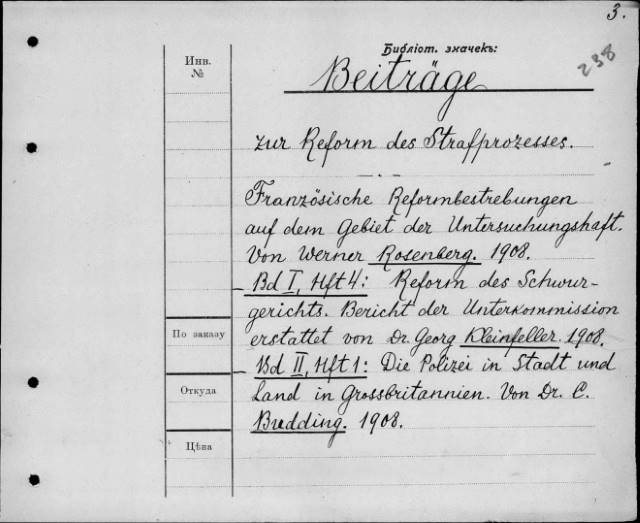 3.
Библіот. значекъ:
238
Инв.
№
Beiträge
zur Reform des Strafprozesses.
Französische Reformbestrebungen
auf dem Gebiet der Untersuchungshaft.
Von Werner Rosenberg. 1908.
– Bd I, Hft 4: Reform des Schwur-
gerichts. Bericht der Unterkommission
erstattet von Dr. Georg Kleinfeller. 1908.
– Bd II, Hft 1: Die Polizei in Stadt und
Land in Grossbritannien. Von Dr. C.
Budding. 1908.
По заказу
Откуда
Цѣна